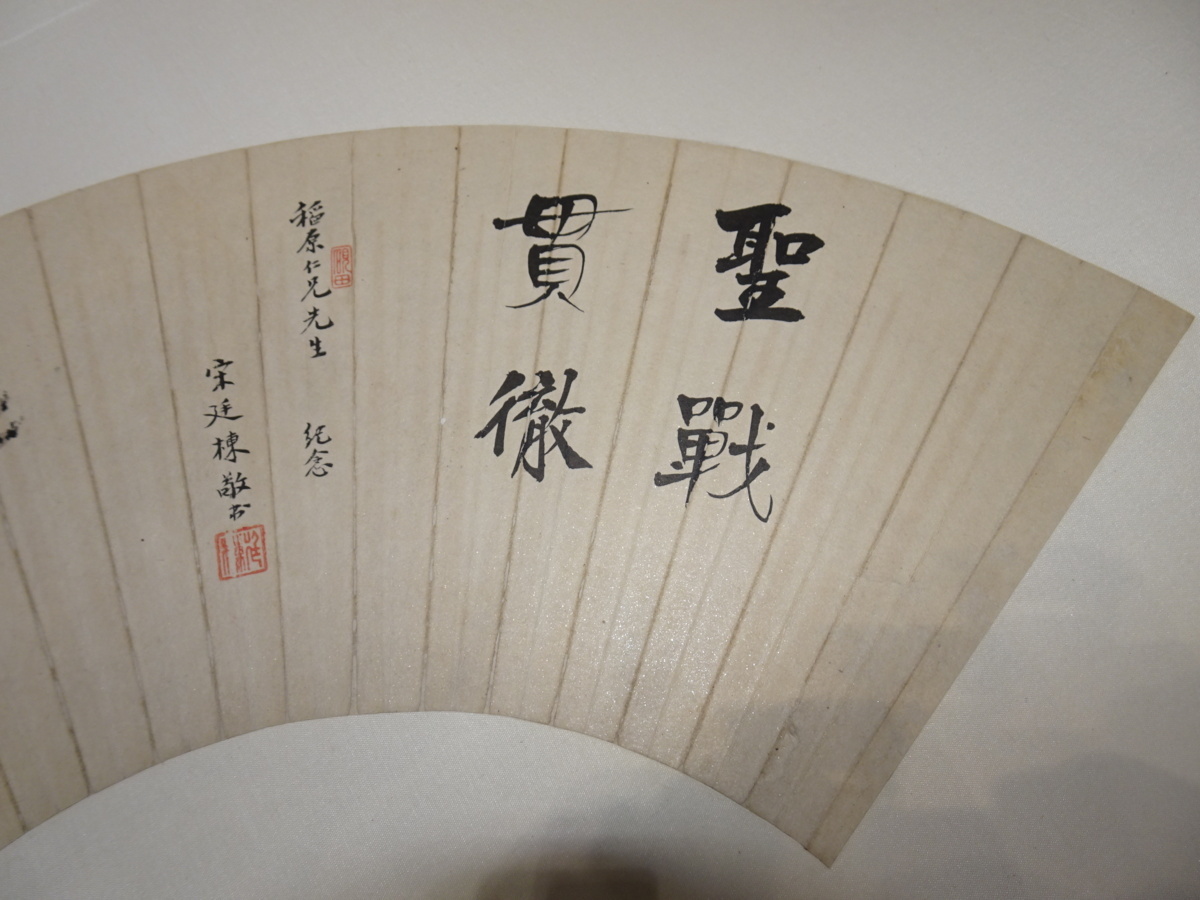 聖戰
貫徹
稲原仁兄先生 紀念
宋廷棟敬书